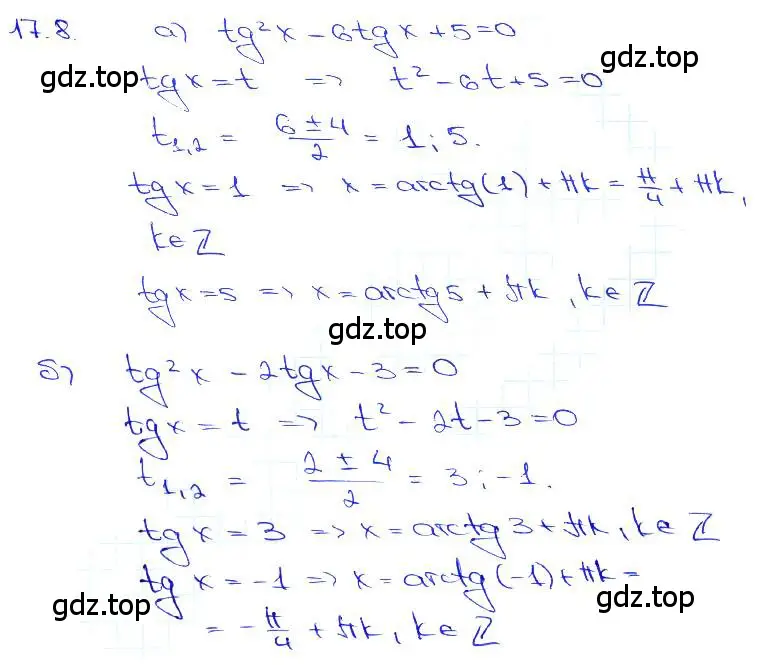 17.8. а) tg²x - 6tgx + 5 = 0
gdz.top
gdz.top
tgx = t => t² - 6t + 5 = 0
t₁,₂ = (6 ± 4)/2 = 1; 5.
tgx = 1 => x = arctg(1) + πk = π/4 + πk,
k∈ℤ
tgx = 5 => x = arctg5 + πk, k∈ℤ
gdz.top
б) tg²x - 2tgx - 3 = 0
tgx = t => t² - 2t - 3 = 0
t₁,₂ = (2 ± 4)/2 = 3; -1.
tgx = 3 => x = arctg3 + πk, k∈ℤ
tgx = -1 => x = arctg(-1) + πk =
gdz.top
gdz.top
= -π/4 + πk, k∈ℤ